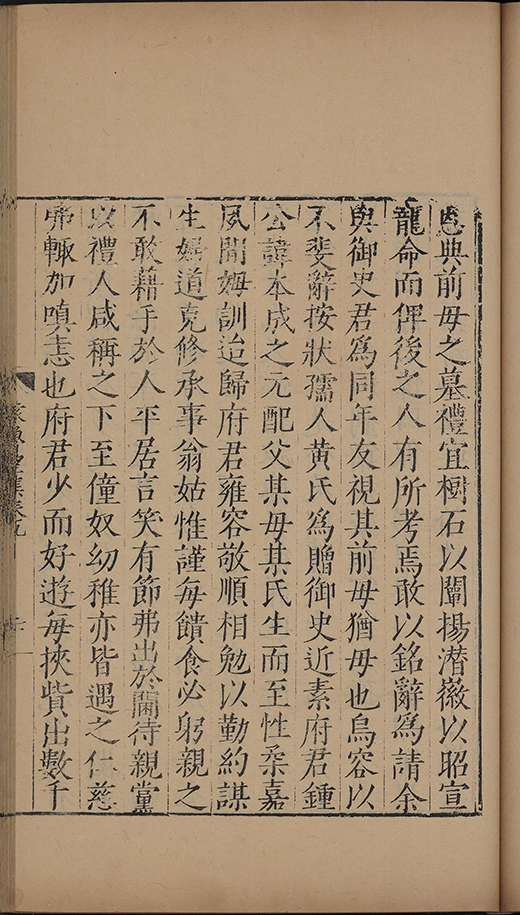 恩典前母之墓禮宜樹石以闡揚潜徽以昭宣
寵命而俾後之人有所考焉敢以銘辭為請余
與御史君為同年友視其前母猶母也烏容以
不斐辭按狀孺人黃氏為贈御史近素府君鍾
公諱本成之元配父某母某氏生而至性柔嘉
夙閒姆訓迨歸府君雍容敬順相勉以勤約謀
生婦道克修承事翁姑惟謹每饋食必躬親之
不敢藉手於人平居言笑有節弗出於閫待親黨
以禮人咸稱之下至僮奴幼稚亦皆遇之仁慈
弗輙加嗔恚也府君少而好遊每挾貲出數千
集卷九